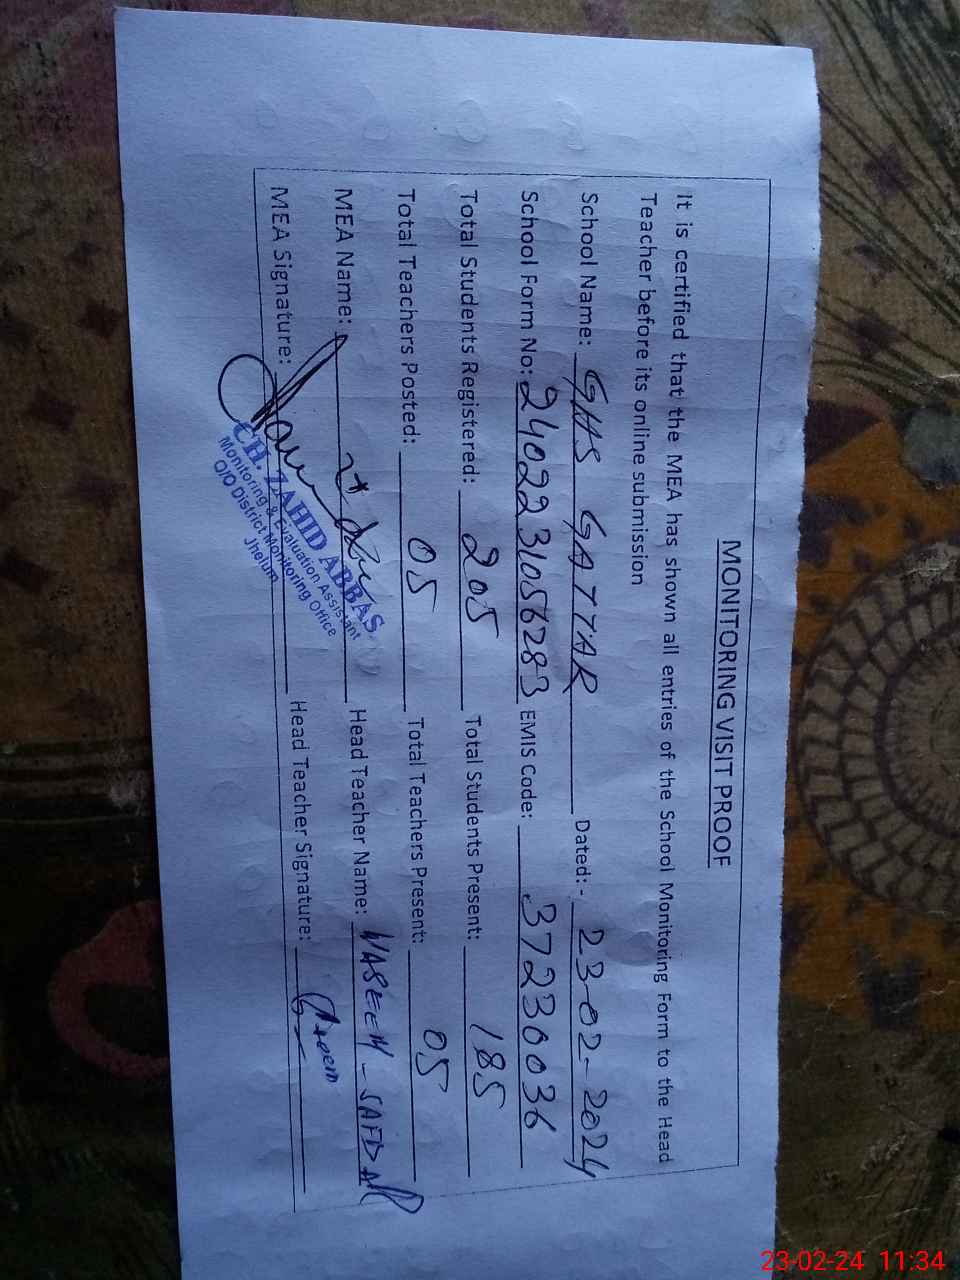 MONITORING VISIT PROOF
It is certified that the MEA has shown all entries of the School Monitoring Form to the Head
Teacher before its online submission
School Name: GHS GATTAR Dated: - 23-02-2024
School Form No: 2402231056283 EMIS Code: 37230036
Total Students Registered: 205 Total Students Present: 185
Total Teachers Posted: 05 Total Teachers Present: 05
MEA Name: Head Teacher Name: WASEEM - SAFDAR
MEA Signature: Head Teacher Signature:
CH. ZAHID ABBAS
Monitoring & Evaluation Assistant
O/O District Monitoring Office
Jhelum
23-02-24 11:34